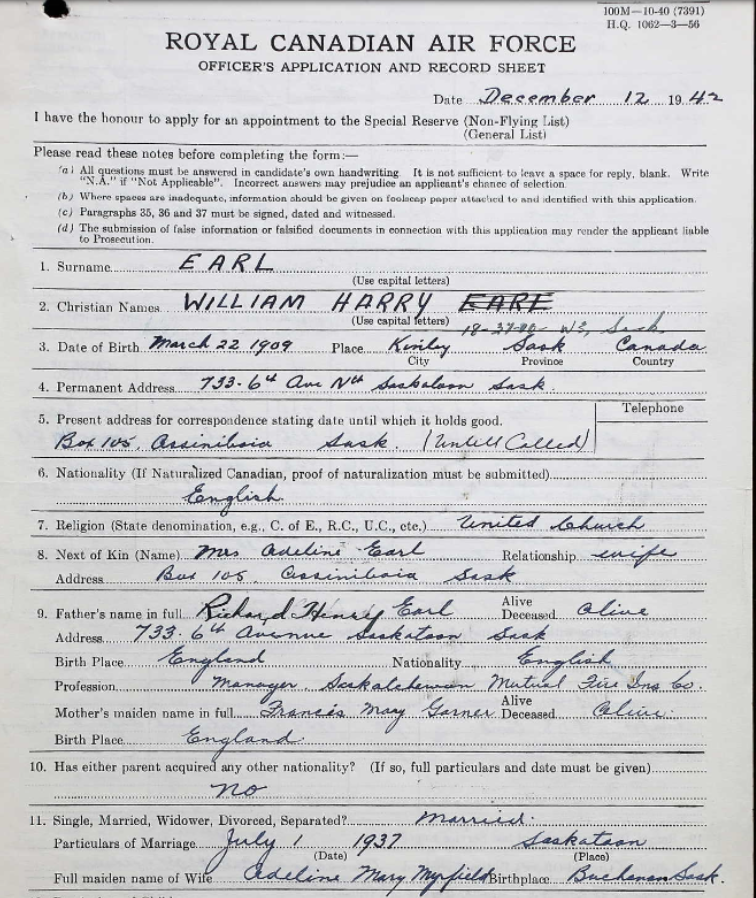 100M—10-40 (7391)
H.Q. 1062—3—56
ROYAL CANADIAN AIR FORCE
OFFICER'S APPLICATION AND RECORD SHEET
Date December 12 1942
I have the honour to apply for an appointment to the Special Reserve (Non-Flying List)
(General List)
Please read these notes before completing the form:—
(a) All questions must be answered in candidate's own handwriting. It is not sufficient to leave a space for reply, blank. Write
"N.A." if "Not Applicable". Incorrect answers may prejudice an applicant's chance of selection.
(b) Where spaces are inadequate, information should be given on foolscap paper attached to and identified with this application.
(c) Paragraphs 35, 36 and 37 must be signed, dated and witnessed.
(d) The submission of false information or falsified documents in connection with this application may render the applicant liable
to Prosecution.
1. Surname EARL
(Use capital letters)
2. Christian Names WILLIAM HARRY EARL
(Use capital letters) W3, Sask.
3. Date of Birth March 22 1909 Place Kinley Sask Canada
City Province Country
4. Permanent Address 733-6th Ave Nth Saskatoon Sask.
Telephone
5. Present address for correspondence stating date until which it holds good.
Box 105, Assiniboia Sask. (Untill Called)
6. Nationality (If Naturalized Canadian, proof of naturalization must be submitted)
English
7. Religion (State denomination, e.g., C. of E., R.C., U.C., etc.) United Church
8. Next of Kin (Name) Mrs Adeline Earl Relationship wife
Address Box 105, Assiniboia Sask
9. Father's name in full Richard Henry Earl Alive Deceased Alive
Address 733-6th Avenue Saskatoon Sask
Birth Place England Nationality English
Profession Manager, Saskatchewan Mutual Fire Ins Co.
Mother's maiden name in full Francis Mary Garner Alive Deceased Alive.
Birth Place England.
10. Has either parent acquired any other nationality? (If so, full particulars and date must be given)
no
11. Single, Married, Widower, Divorced, Separated? Married.
Particulars of Marriage July 1 1937 Saskatoon
(Date) (Place)
Full maiden name of Wife Adeline Mary Myrfield Birthplace Buchanan Sask.